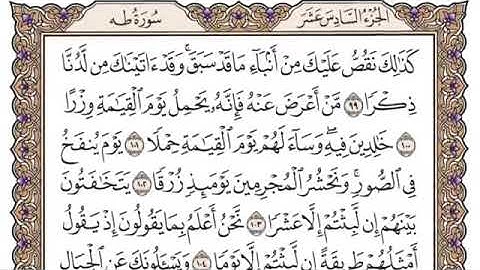 الجزء السادس عشر
سورة طه
كَذَٰلِكَ نَقُصُّ عَلَيْكَ مِنْ أَنۢبَآءِ مَا قَدْ سَبَقَ ۚ وَقَدْ ءَاتَيْنَٰكَ مِن لَّدُنَّا
ذِكْرًا ٩٩ مَّنْ أَعْرَضَ عَنْهُ فَإِنَّهُۥ يَحْمِلُ يَوْمَ ٱلْقِيَٰمَةِ وِزْرًا
١٠٠ خَٰلِدِينَ فِيهِ ۖ وَسَآءَ لَهُمْ يَوْمَ ٱلْقِيَٰمَةِ حِمْلًا ١٠١ يَوْمَ يُنفَخُ
فِى ٱلصُّورِ ۚ وَنَحْشُرُ ٱلْمُجْرِمِينَ يَوْمَئِذٍ زُرْقًا ١٠٢ يَتَخَٰفَتُونَ
بَيْنَهُمْ إِن لَّبِثْتُمْ إِلَّا عَشْرًا ١٠٣ نَّحْنُ أَعْلَمُ بِمَا يَقُولُونَ إِذْ يَقُولُ
أَمْثَلُهُمْ طَرِيقَةً إِن لَّبِثْتُمْ إِلَّا يَوْمًا ١٠٤ وَيَسْـَٔلُونَكَ عَنِ ٱلْجِبَالِ